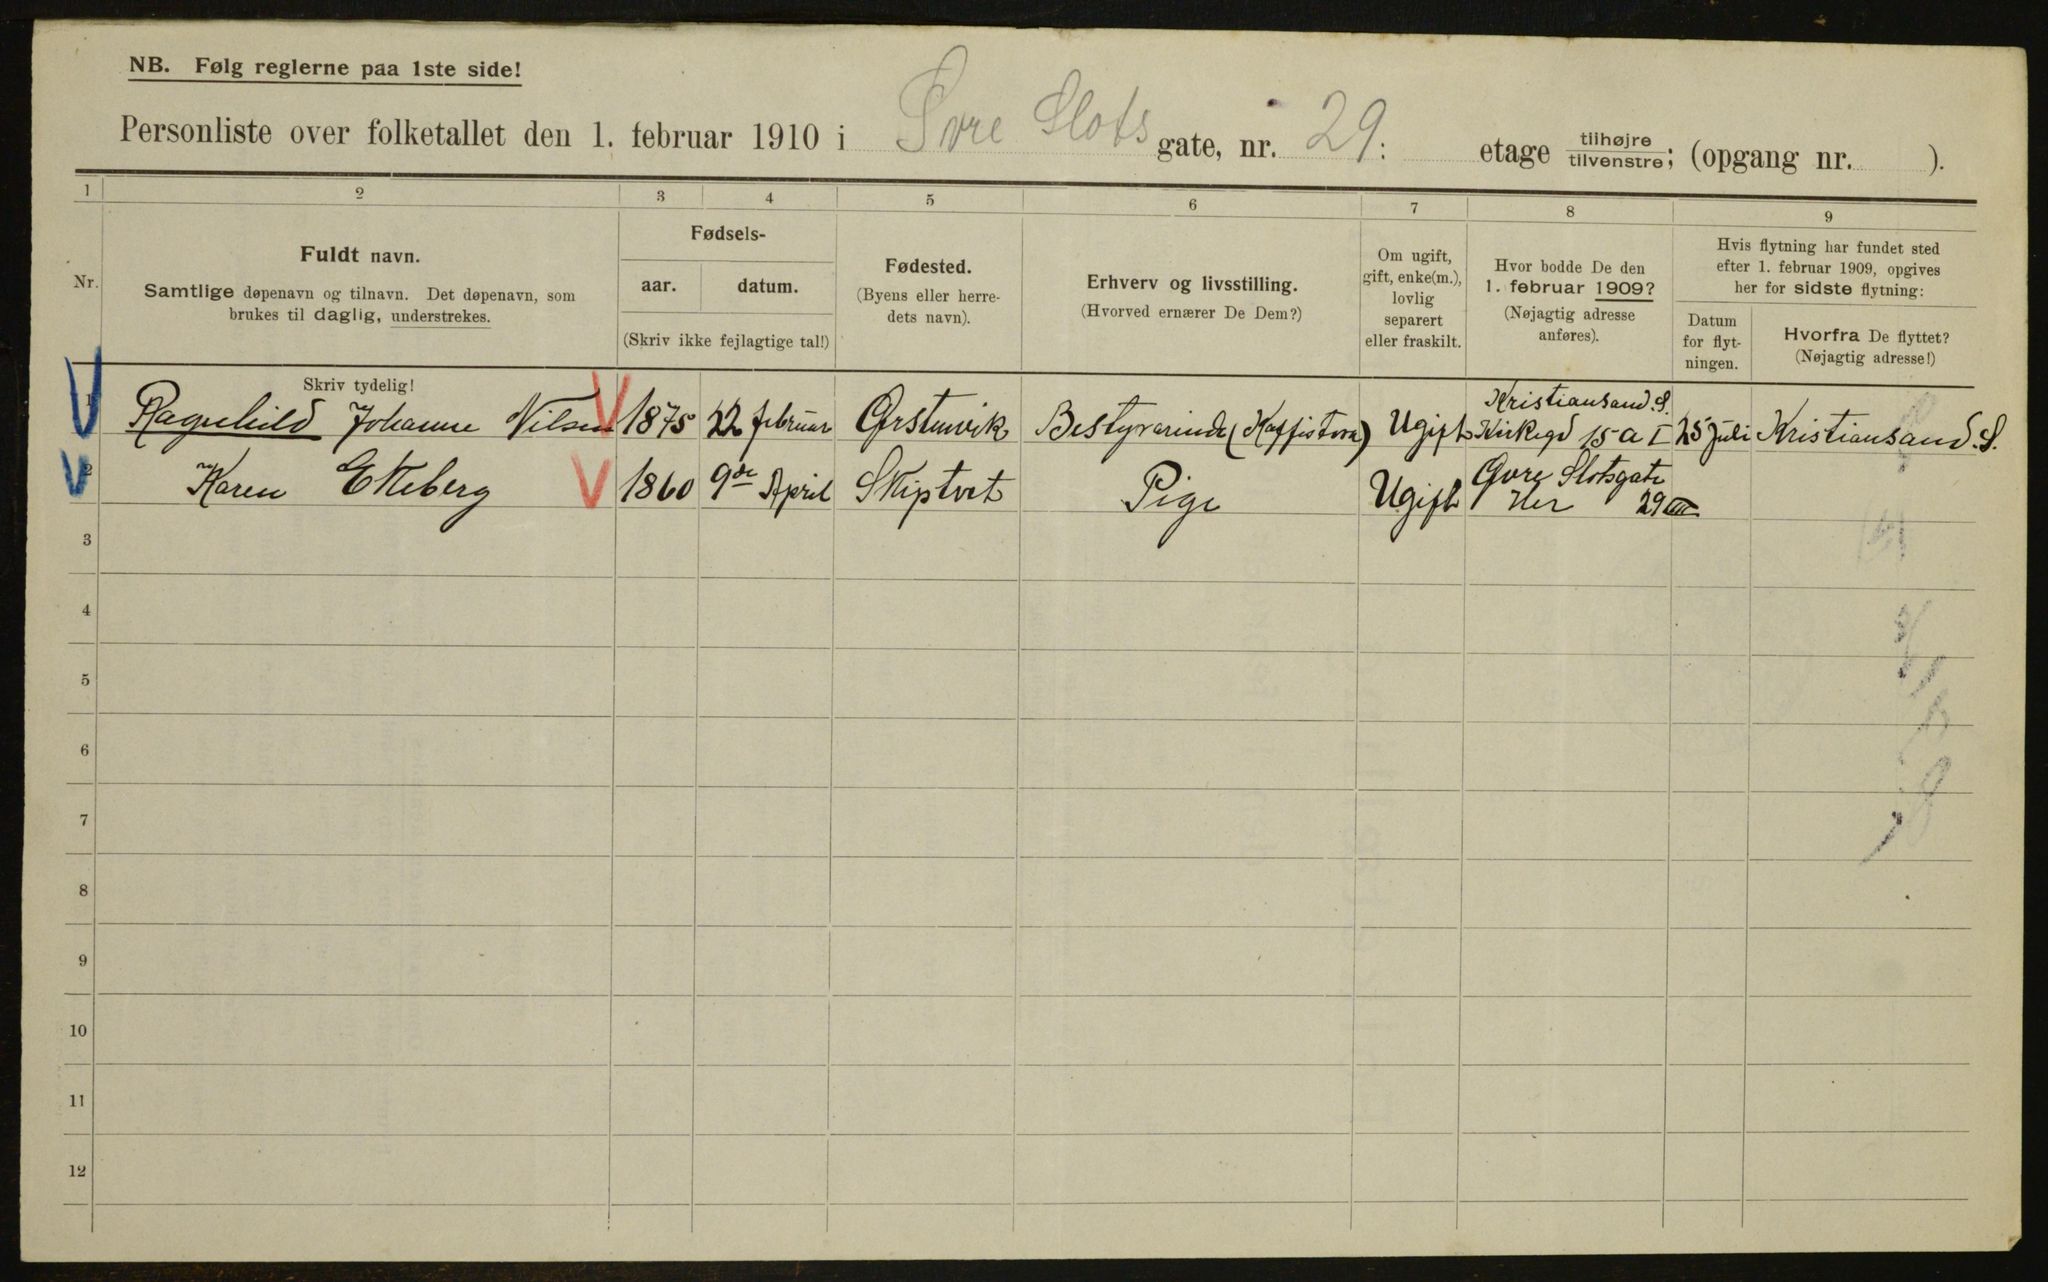 NB. Følg reglerne paa 1ste side!
Personliste over folketallet den 1. februar 1910 i Øvre Slots gate, nr. 29: etage tilhøjre tilvenstre; (opgang nr. ).
1 2 3 4 5 6 7 8 9
Nr.
Fuldt navn.
Samtlige døpenavn og tilnavn. Det døpenavn, som
brukes til daglig, understrekes.
Skriv tydelig!
Fødsels-
aar. datum.
(Skriv ikke fejlagtige tal!)
Fødested.
(Byens eller herre-
dets navn).
Erhverv og livsstilling.
(Hvorved ernærer De Dem?)
Om ugift,
gift, enke(m.),
lovlig
separert
eller fraskilt.
Hvor bodde De den
1. februar 1909?
(Nøjagtig adresse
anføres).
Hvis flytning har fundet sted
efter 1. februar 1909, opgives
her for sidste flytning:
Datum
for flyt-
ningen.
Hvorfra De flyttet?
(Nøjagtig adresse!)
Kristiansand. S.
1 Ragnhild Johanne Nilsen 1875 22 februar Ørstenvik Bestyrerinde (Kaffistova) Ugift Kirkegd 15 a I 25 Juli Kristiansand. S.
Øvre Slotsgate
2 Karen Ekeberg 1860 9de April Skiptvet Pige Ugift Her 29 III
3
4
5
6
7
8
9
10
11
12